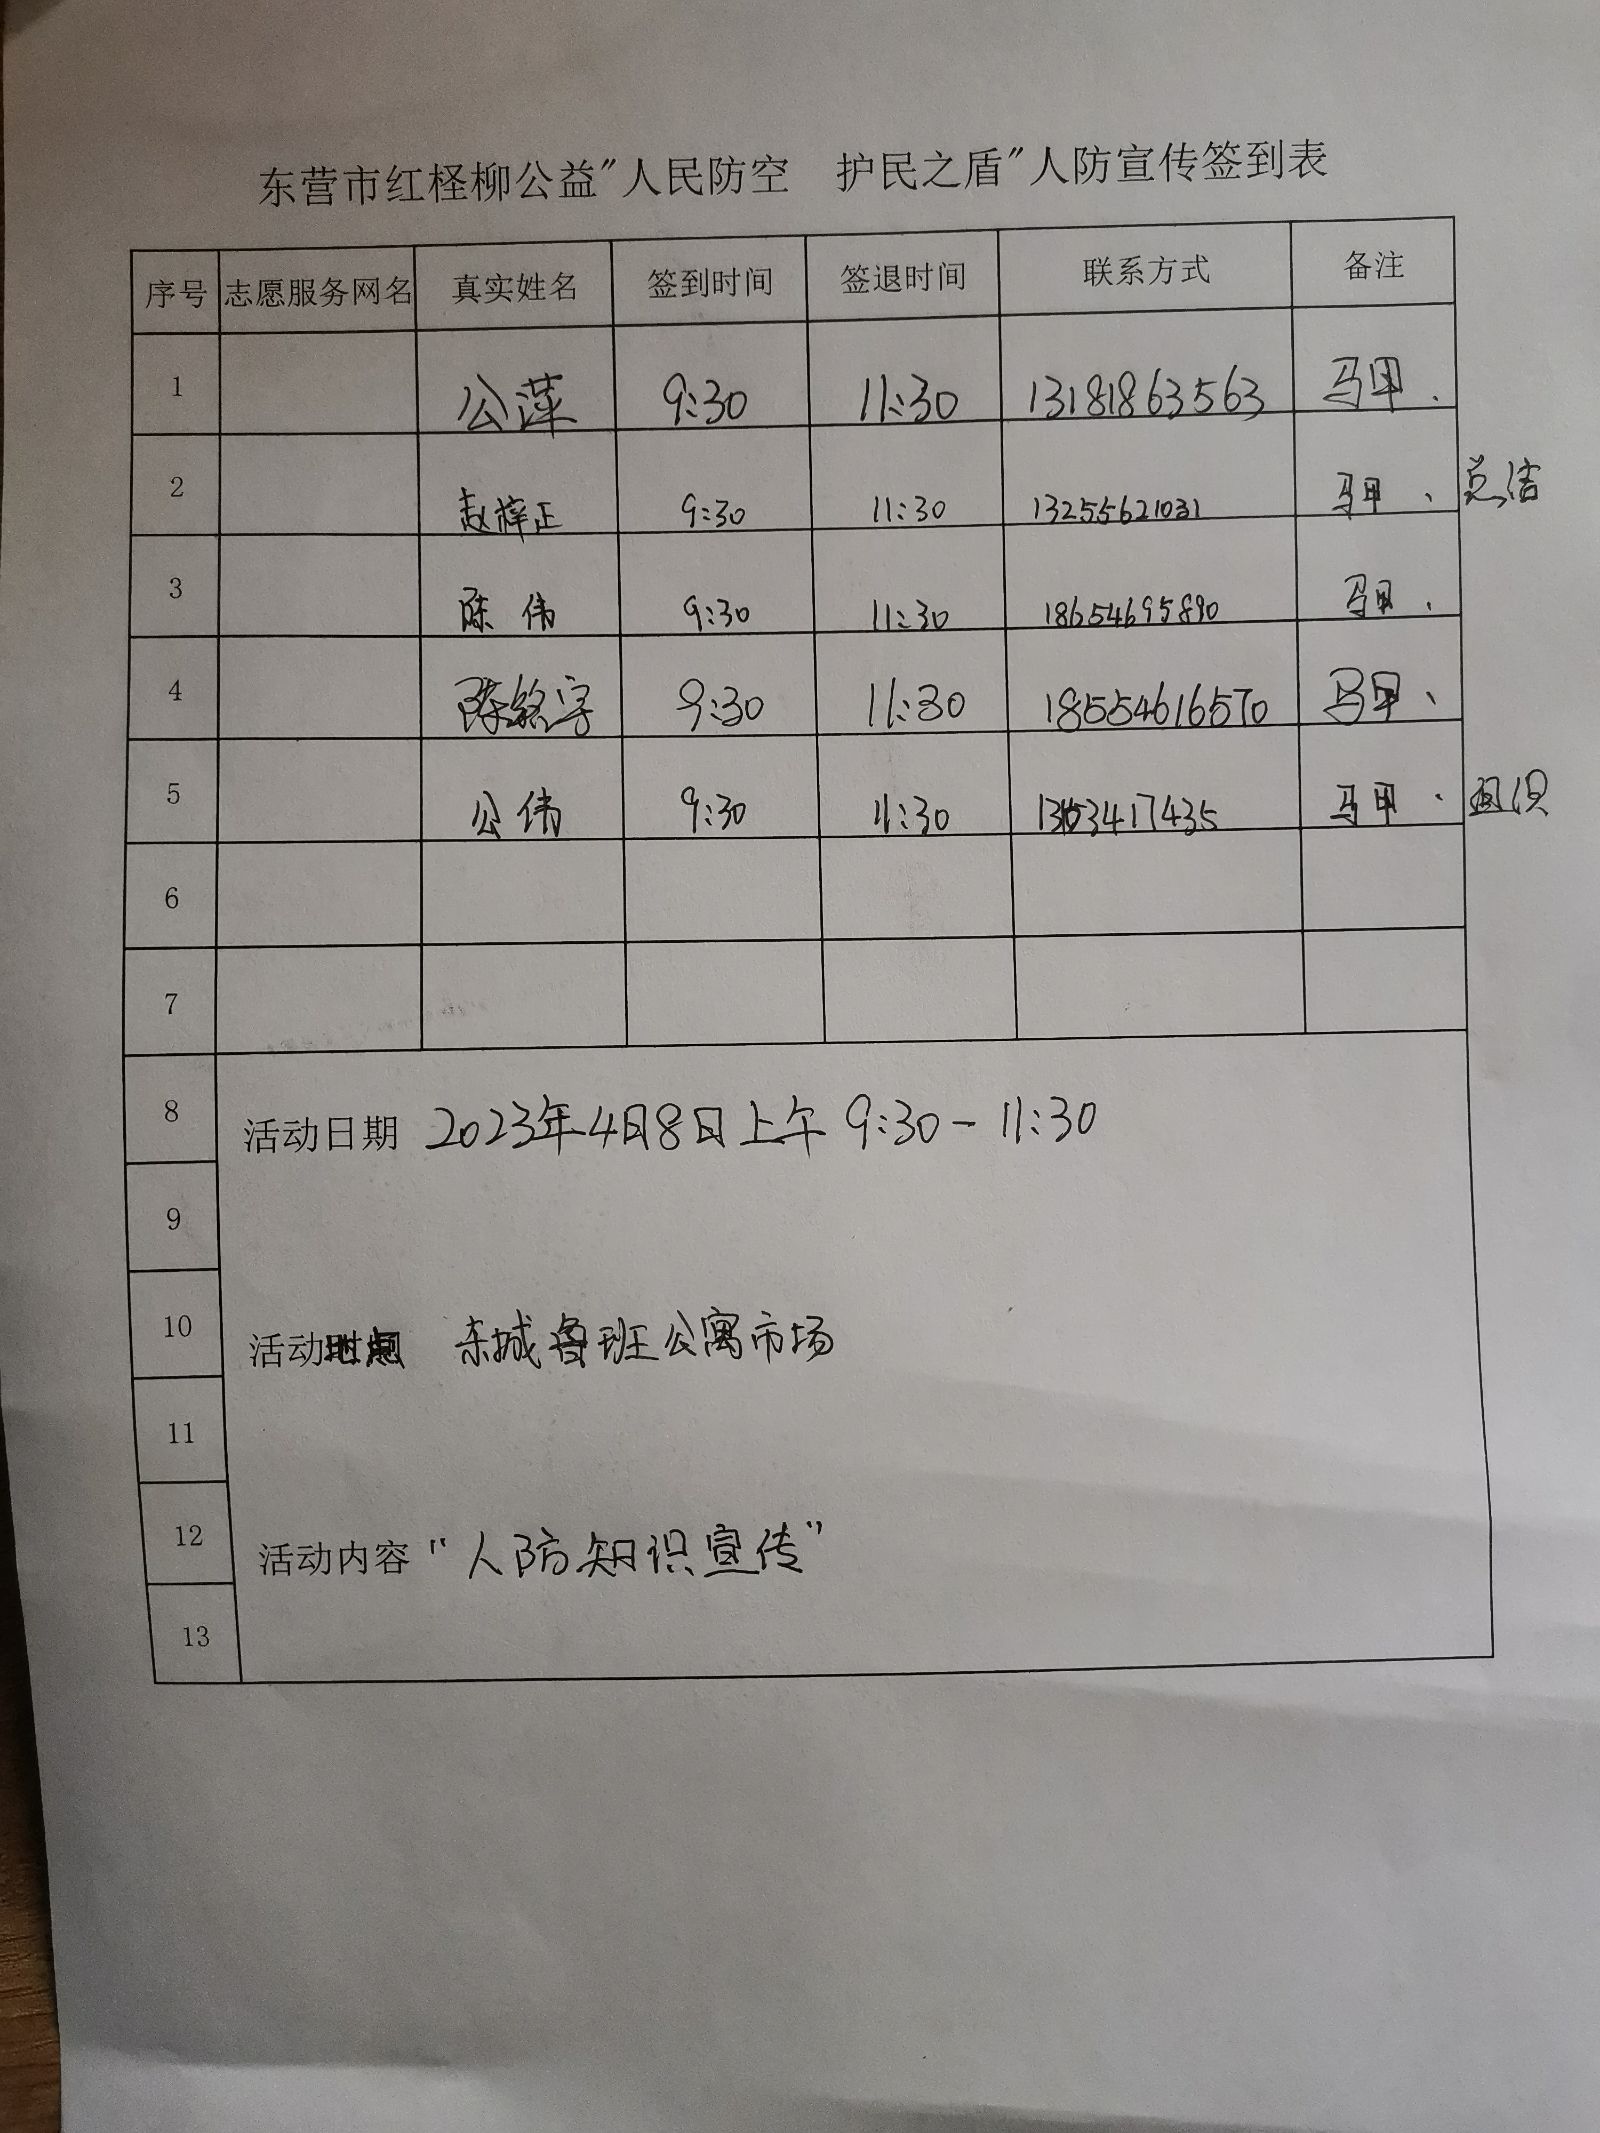 东营市红柽柳公益"人民防空 护民之盾"人防宣传签到表
序号 志愿服务网名 真实姓名 签到时间 签退时间 联系方式 备注
1 公萍 9:30 11:30 13181863563 马甲.
2 赵梓正 9:30 11:30 13255621031 马甲、总结
3 陈伟 9:30 11:30 18654695890 马甲.
4 陈铭宇 9:30 11:30 18554616570 马甲、
5 公伟 9:30 11:30 马甲.
6
7
8 活动日期 2023年4月8日上午 9:30-11:30
9
10 活动 东城鲁班公寓市场
11
12 活动内容 "人防知识宣传"
13